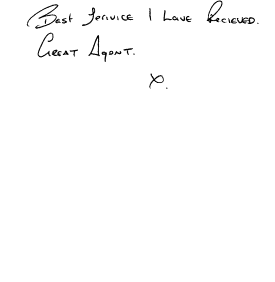 Best Serivice I have Recieved.
Great Agent.
X.